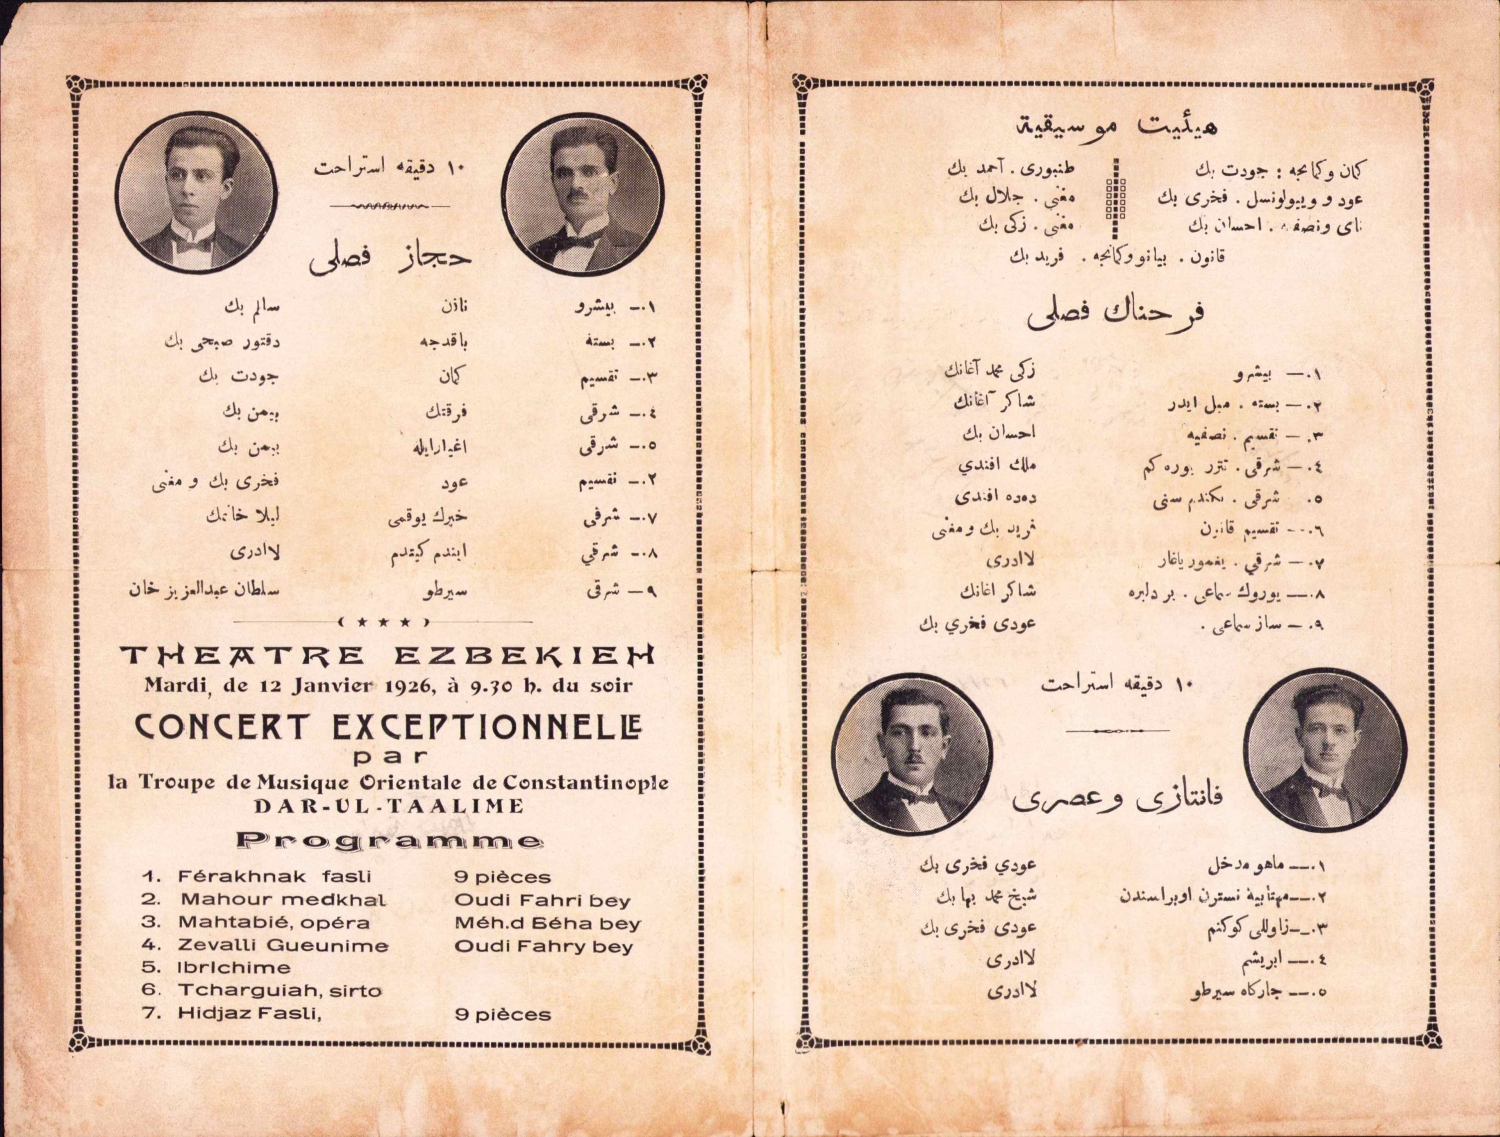 هيئيت موسيقية
كمان وكمانجه : جودت بك
طنبورى . آحمد بك
عود و ويبولونسل . فخرى بك
مغنى . جلال بك
ناى ونصفيه . احسان بك
مغنى . زكى بك
قانون . بيانو وكمانجه . فريد بك
فرحناك فصلى
١.— بيشرو زكى محمد آغانك
٢.— بسته . ميل ايدر شاكر آغانك
٣.— تقسيم . نصفيه احسان بك
٤.— شرقى . تتزر يوره كم ملك افندي
٥. شرقى . دده افندى
٦.— تقسيم قانون فريد بك ومغنى
٧.— شرقي . يغمور ياغار لاادرى
٨.— يوروك سماعى . بر دلبره شاكر اغانك
٩.— ساز سماعى . عودى فخري بك
١٠ دقيقه استراحت
فانتازى وعصرى
١.— ماهو مدخل عودي فخرى بك
٢.—مهتابية نسترن اوبراسندن شيخ محمد بها بك
٣.—زاوللى كوكنم عودى فخرى بك
٤.— ابريشم لاادرى
٥.— جاركاه سيرطو لاادرى
١٠ دقيقه استراحت
حجاز فصلى
١.— بيشرو نازن سالم بك
٢.— بسته باقدجه دقتور صبحى بك
٣.— تقسيم كمان جودت بك
٤.— شرقى فرقتك بيمن بك
٥.— شرقى اغيارايله بيمن بك
٢.— تقسيم عود فخرى بك و مغنى
٧.— شرقى خبرك يوقمى ليلا خانمك
٨.— شرقي ايندم كيتدم لاادرى
٩— شرقى سيرطو سلطان عبدالعزيز خان
THEATRE EZBEKIEH
Mardi, de 12 Janvier 1926, à 9.30 h. du soir
CONCERT EXCEPTIONNELLE
par
la Troupe de Musique Orientale de Constantinople
DAR-UL-TAALIME
Programme
1. Férakhnak fasli 9 pièces
2. Mahour medkhal Oudi Fahri bey
3. Mahtabié, opéra Méh.d Béha bey
4. Zevalli Gueunime Oudi Fahry bey
5. IbrIchime
6. Tcharguiah, sirto
7. Hidjaz Fasli, 9 pièces